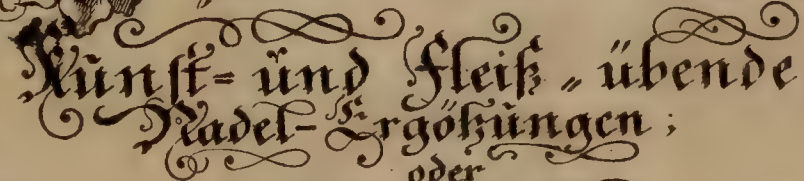 Kunst= und Fleiß „ übende
Nadel-Ergötzungen;
oder